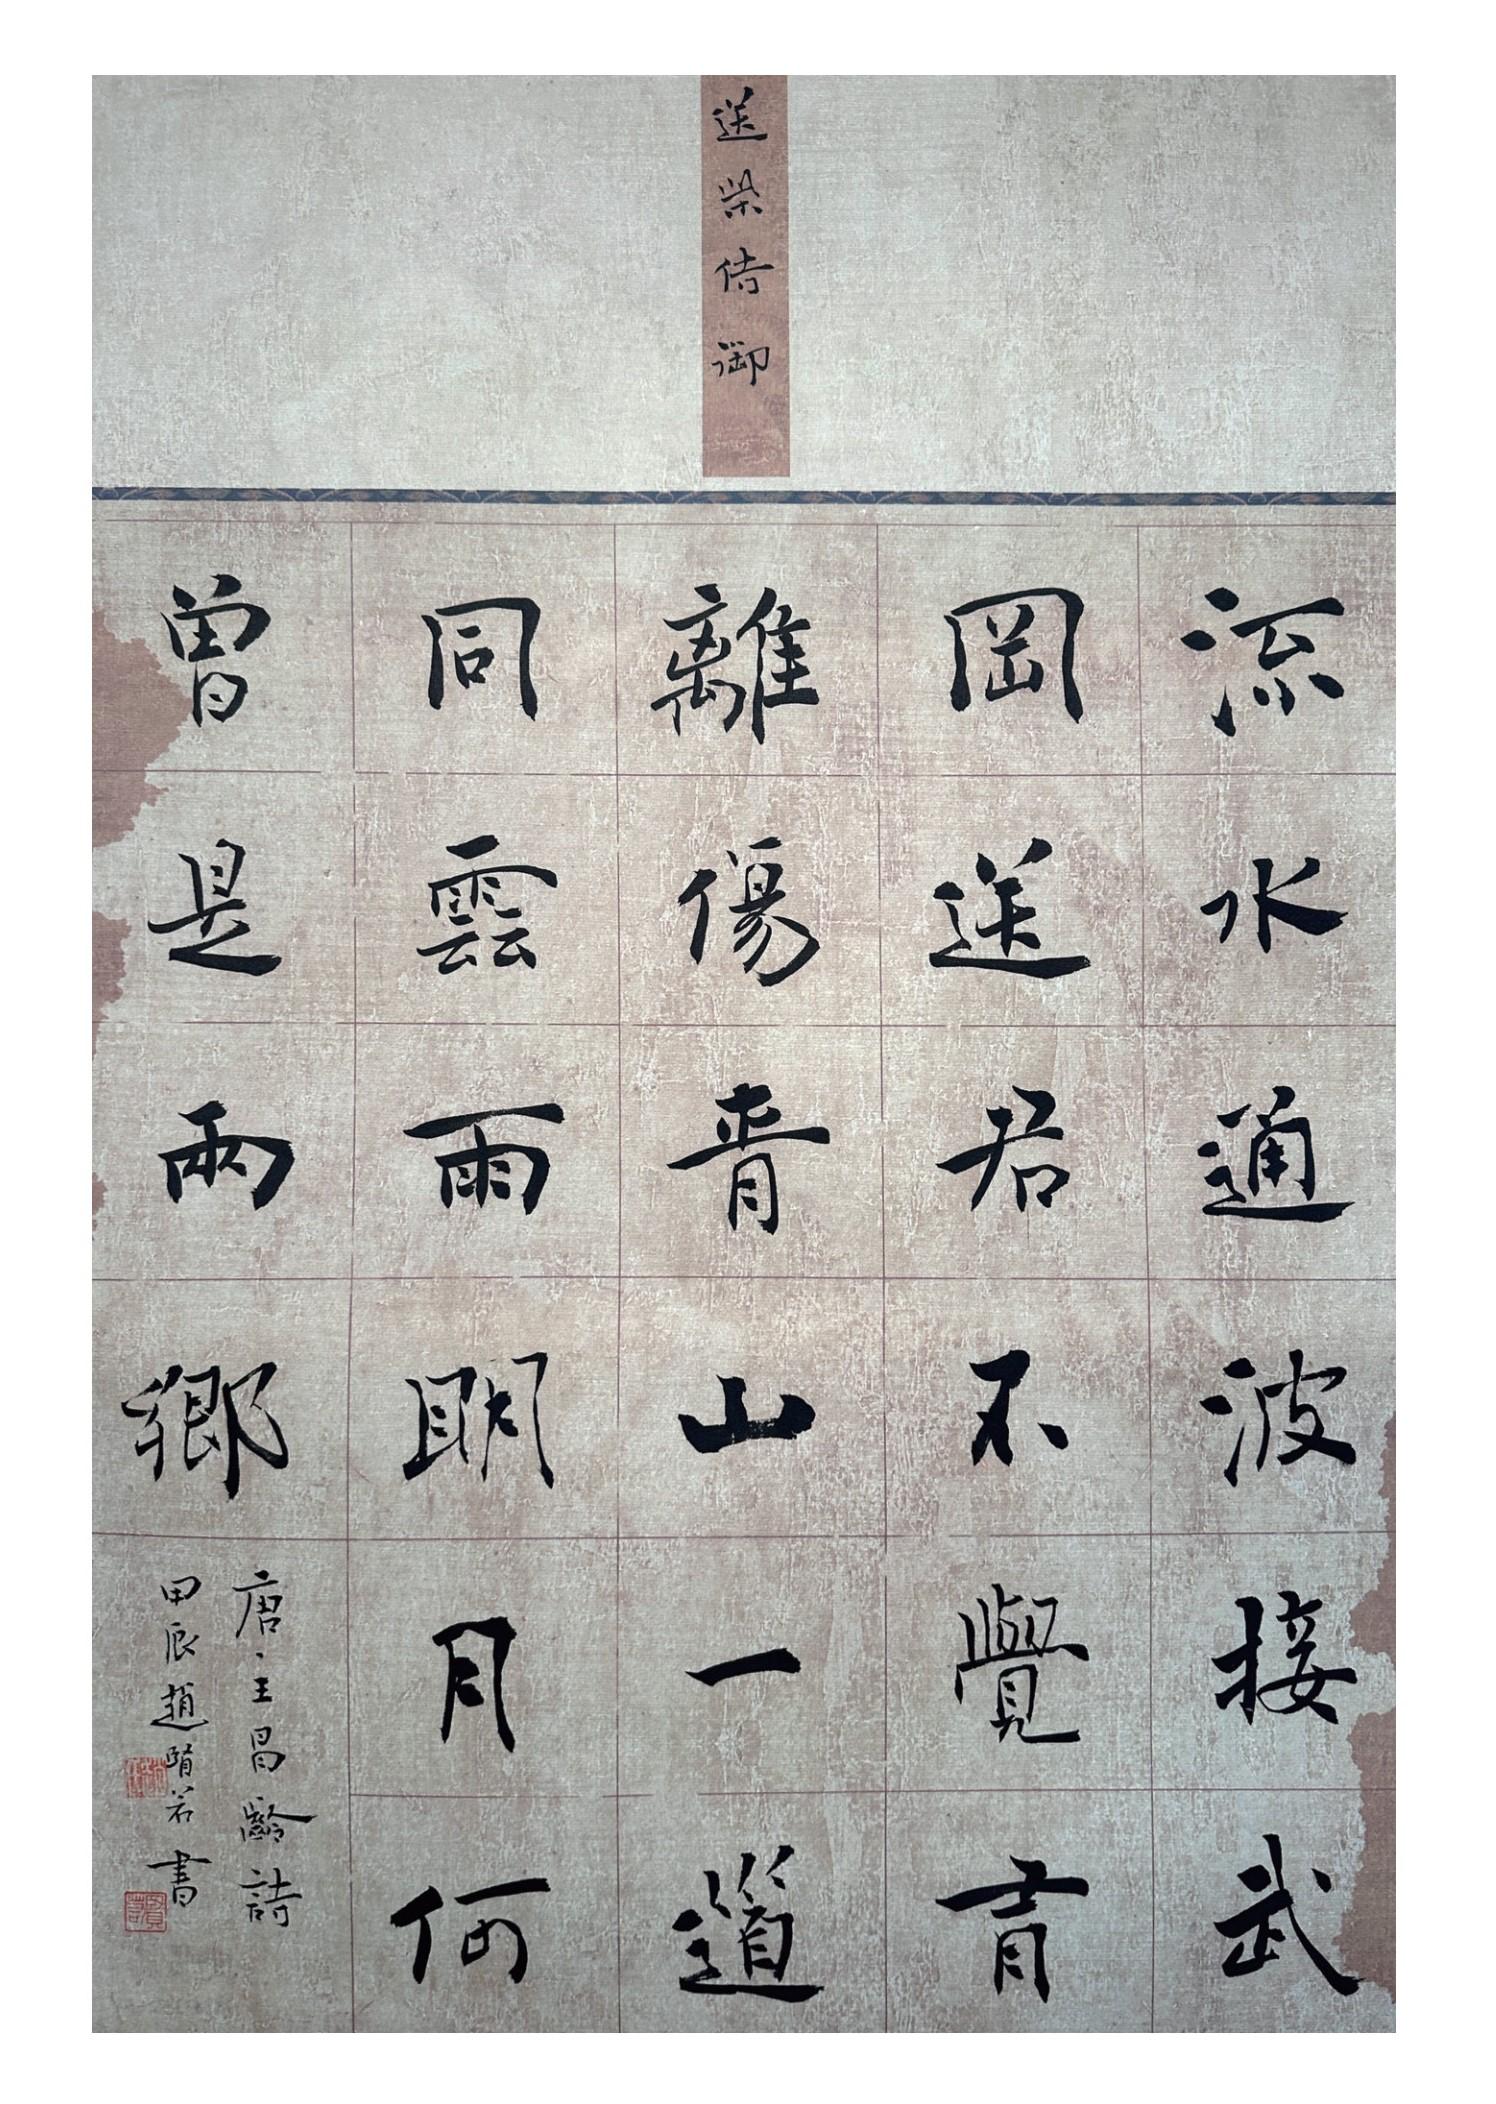 送柴侍御
流水通波接武
岡送君不覺有
離傷青山一道
同雲雨明月何
曾是兩鄉
唐·王昌齡詩
甲辰趙
書